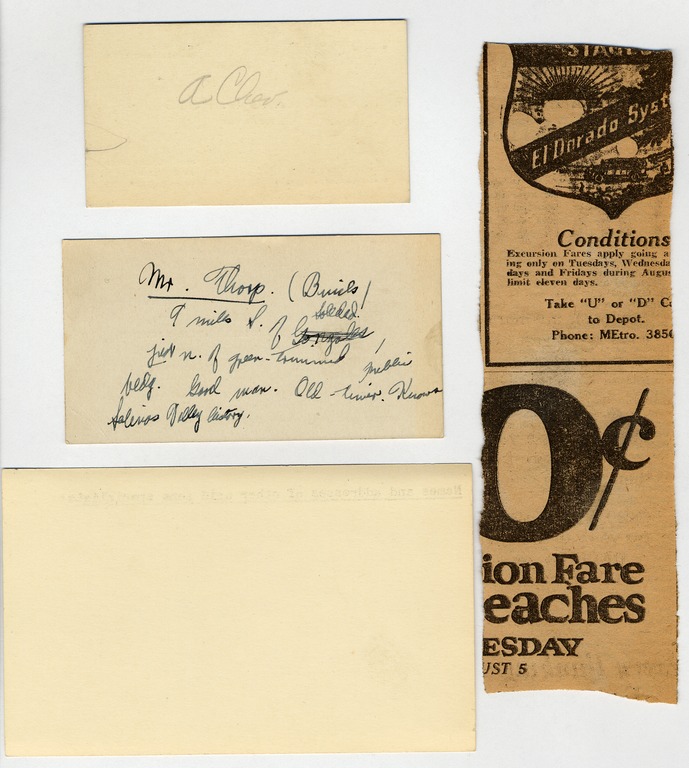 a Chev.
Mr. Thorp. (Buick)
9 miles S. of Gonzales Soledad.
just n. of green-trimmed public
bldg. Good man. Old-timer. Knows
Salinas Valley history.
Names and addresses of other
STAGES
El Dorado Syst
Conditions
Excursion Fares apply going a
ing only on Tuesdays, Wednesda
days and Fridays during Augus
limit eleven days.
Take "U" or "D" Ca
to Depot.
Phone: MEtro. 3850
0¢
ion Fare
eaches
ESDAY
UST 5